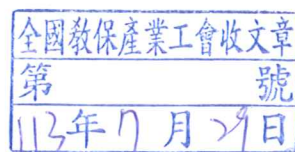 全國教保產業工會收文章
第 號
113年7月29日